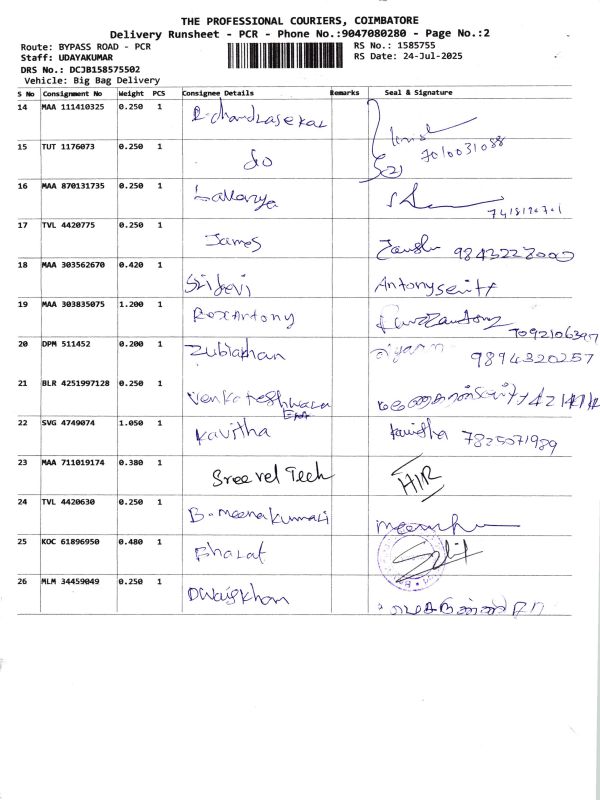 THE PROFESSIONAL COURIERS, COIMBATORE
Delivery Runsheet - PCR - Phone No.:9047080280 - Page No.:2
Route: BYPASS ROAD - PCR
Staff: UDAYAKUMAR
DRS No.: DCJB158575502
Vehicle: Big Bag Delivery
RS No.: 1585755
RS Date: 24-Jul-2025
S No Consignment No Weight PCS Consignee Details Remarks Seal & Signature
14 MAA 111410325 0.250 1 R. chandrasekar
15 TUT 1176073 0.250 1 do 7010031088
16 MAA 870131735 0.250 1
17 TVL 4420775 0.250 1 James
18 MAA 303562670 0.420 1 Sridevi
19 MAA 303835075 1.200 1 RoxAntony
20 DPM 511452 0.200 1 Zubiakhan 9894320257
21 BLR 4251997128 0.250 1 Venkateshwara
22 SVG 4749074 1.050 1 Kavitha Kavitha
23 MAA 711019174 0.380 1 Sree vel Tech
24 TVL 4420630 0.250 1 B. meenakumari
25 KOC 61896950 0.480 1 Bharat
26 MLM 34459049 0.250 1